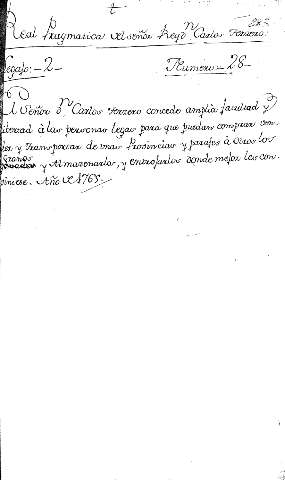 Real Pragmatica del Señor Rey Dn Carlos Tercero.
Legajo: - 2 - Numero - 28 -
El Señor Dn Carlos Tercero concede amplia facultad y
libertad à las personas legas para que puedan comprar ven-
der y transportar de unas Provincias y parajes à otros los
Granos y Almazenarlos, y entrojarlos donde mejor les con-
viniese. Año de 1765.